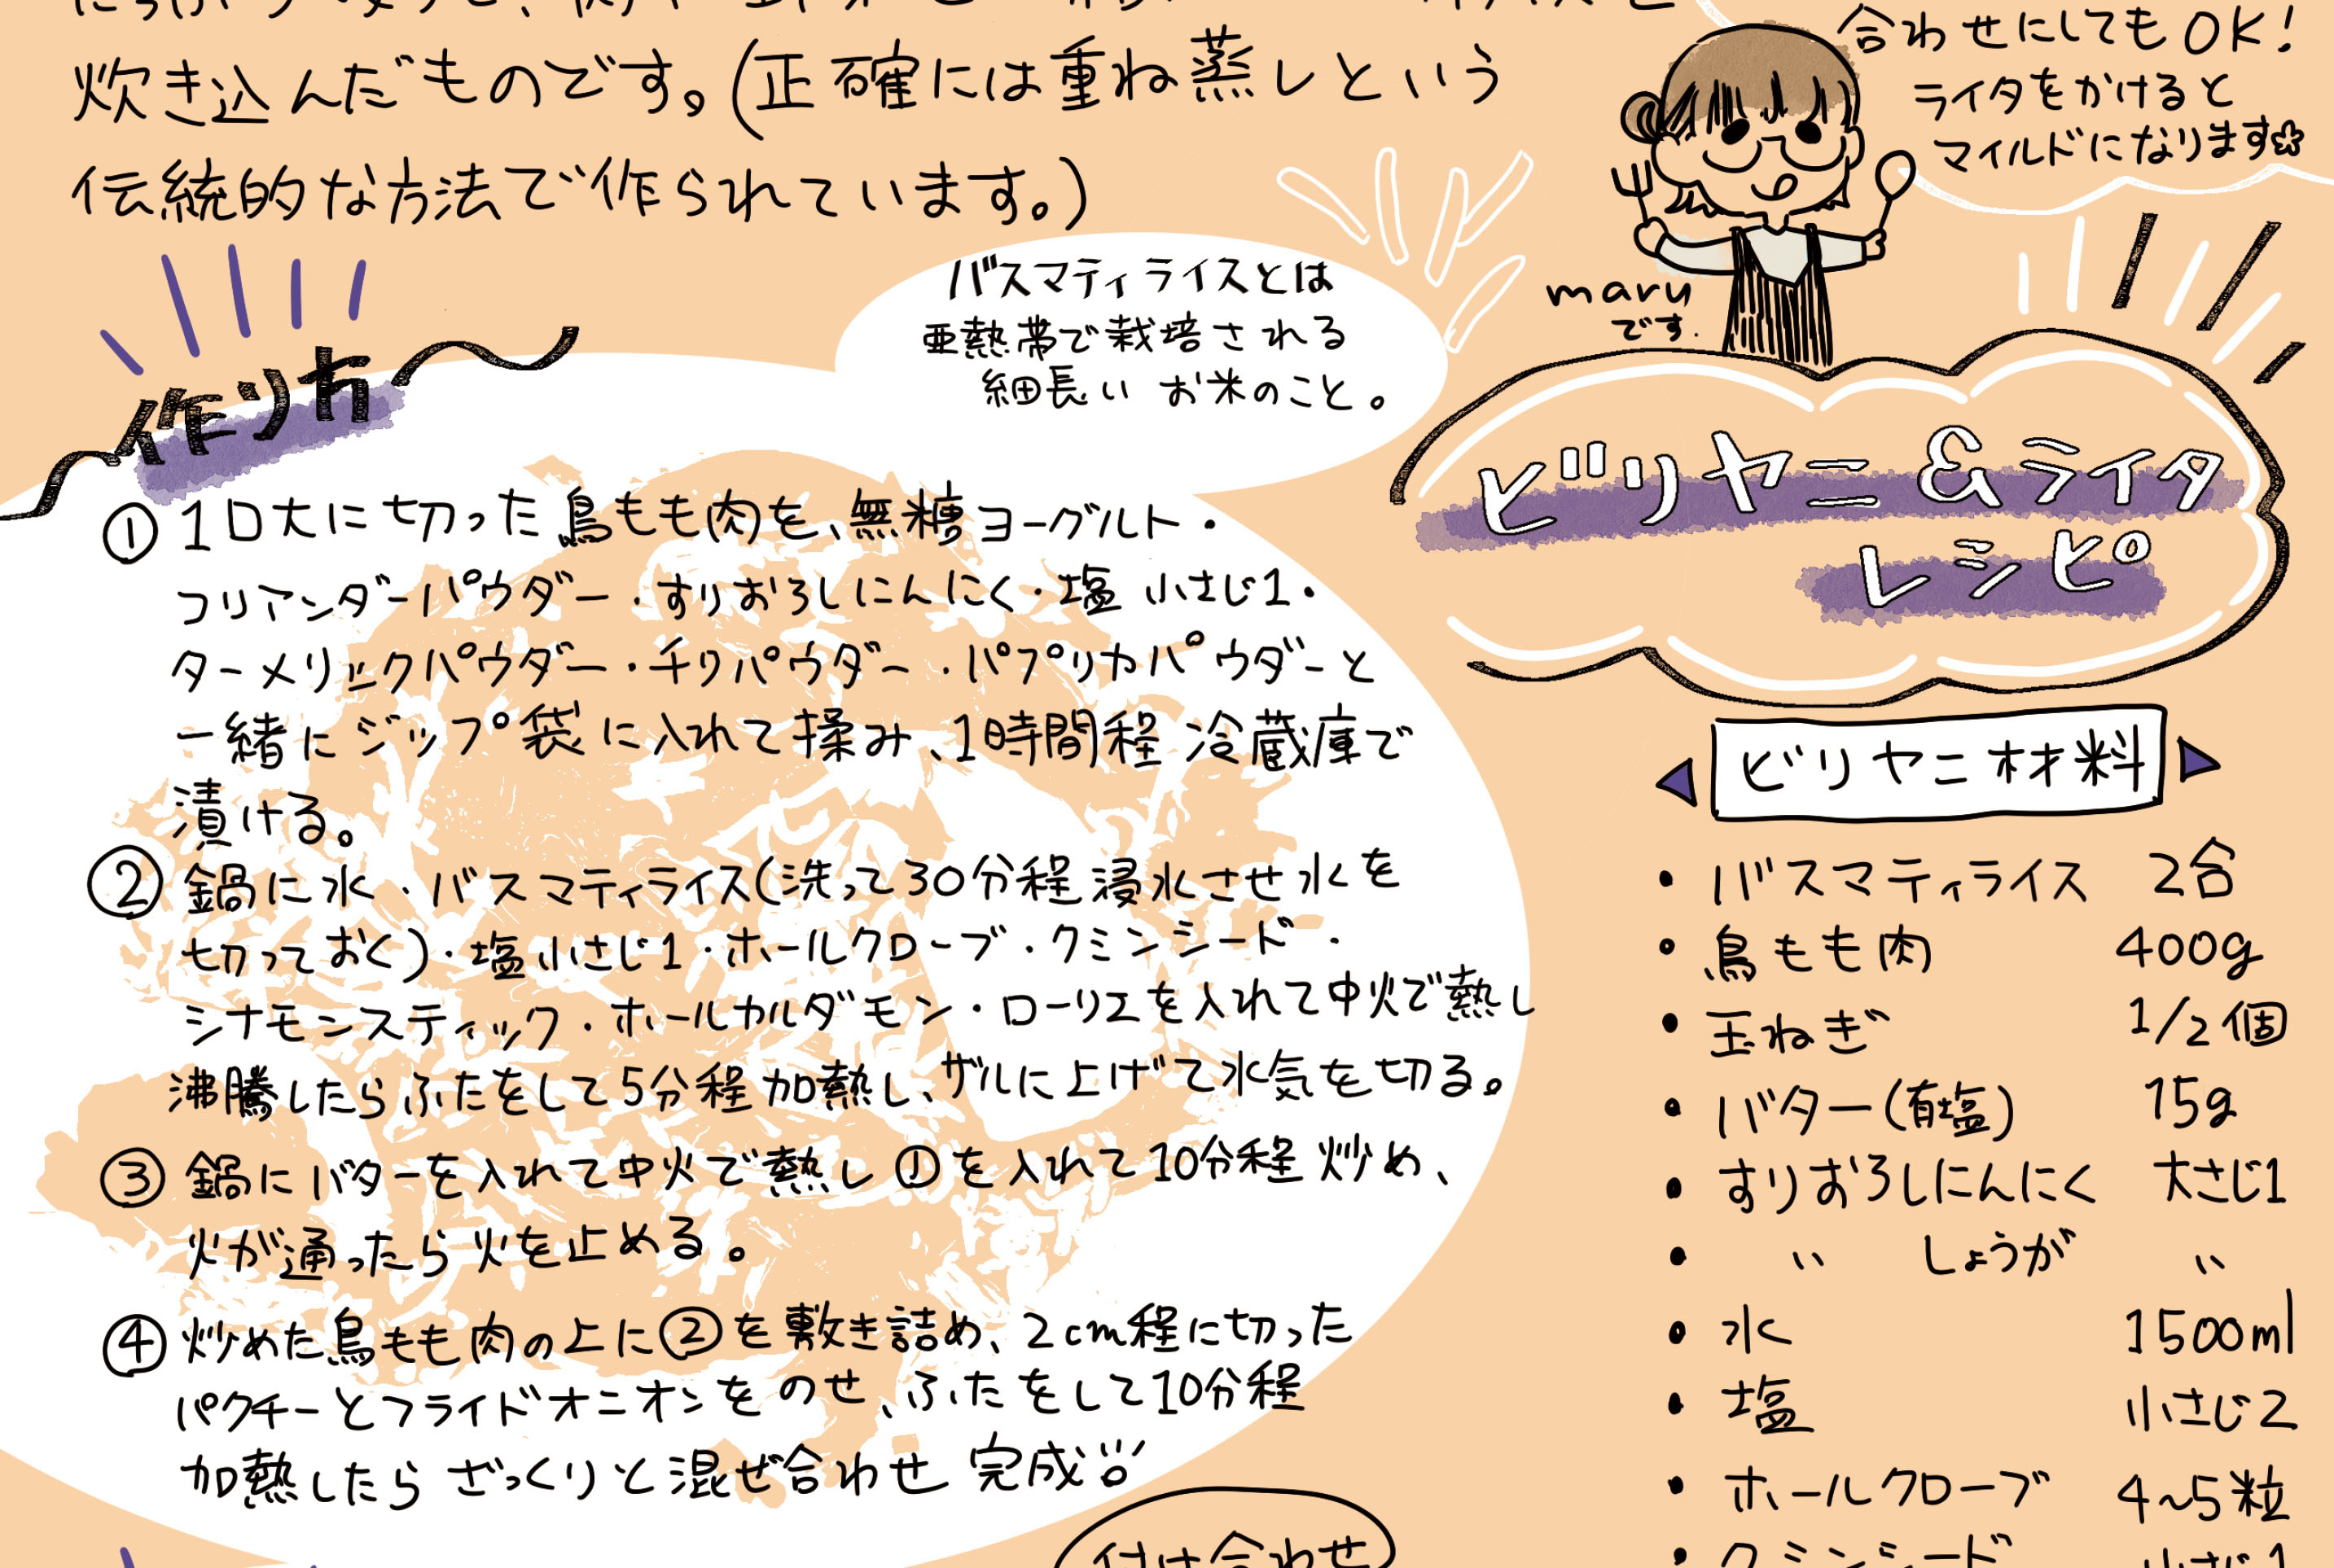 炊き込んだものです。(正確には重ね蒸しという
伝統的な方法で作られています。)
合わせにしてもOK!
ライタをかけると
マイルドになります
maru
です.
バスマティライスとは
亜熱帯で栽培される
細長い お米のこと。
ビリヤニ&ライタ
レシピ
作り方
① 1口大に切った鳥もも肉を、無糖ヨーグルト・
コリアンダーパウダー・すりおろしにんにく・塩 小さじ1・
ターメリックパウダー・チリパウダー・パプリカパウダーと
一緒にジップ袋に入れて揉み、1時間程 冷蔵庫で
漬ける。
② 鍋に水・バスマティライス(洗って30分程浸水させ水を
切っておく)・塩 小さじ1・ホールクローブ・クミンシード・
シナモンスティック・ホールカルダモン・ローリエを入れて中火で熱し
沸騰したらふたをして5分程加熱し、ザルに上げて水気を切る。
③ 鍋にバターを入れて中火で熱し①を入れて10分程炒め、
火が通ったら火を止める。
④ 炒めた鳥もも肉の上に②を敷き詰め、2cm程に切った
パクチーとフライドオニオンをのせ、ふたをして10分程
加熱したらざっくりと混ぜ合わせ 完成
ビリヤニ材料
・バスマティライス 2合
・鳥もも肉 400g
・玉ねぎ 1/2個
・バター(有塩) 15g
・すりおろしにんにく 大さじ1
・〃 しょうが 〃
・水 1500ml
・塩 小さじ2
・ホールクローブ 4~5粒
・クミンシード 小さじ1
付け合わせ